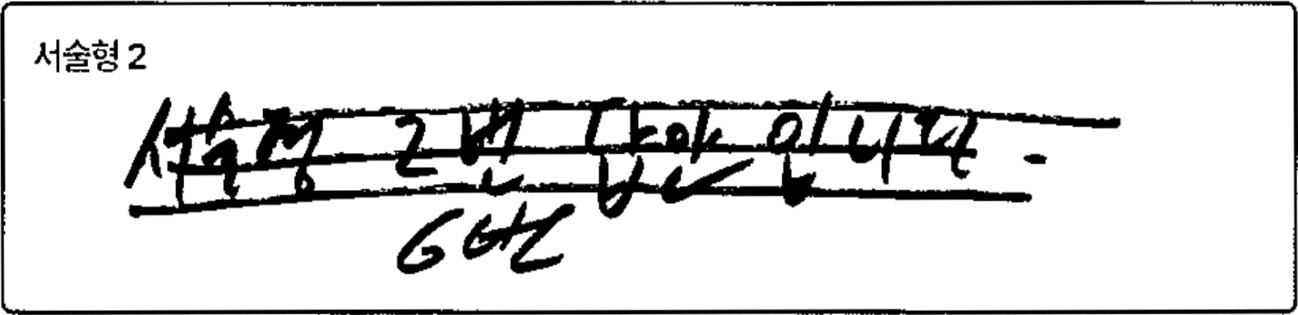 서술형 2
서술형 2번 답안 입니다.
6번